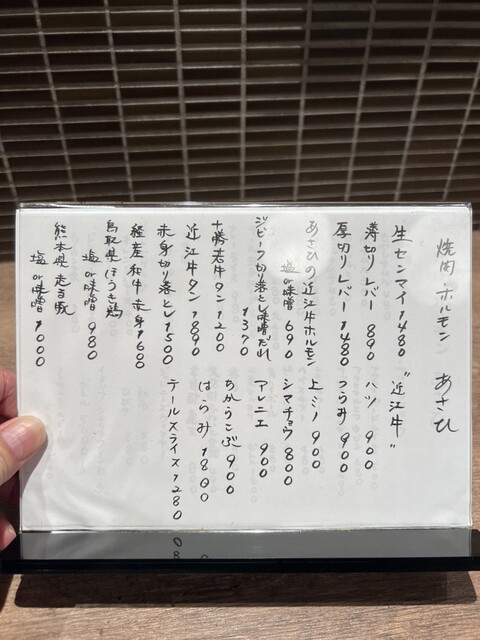 焼肉・ホルモン あさひ
生センマイ 1480
薄切りレバー 890
厚切りレバー 1480
あさひの近江牛ホルモン
塩or味噌 690
ジビーフ切り落とし味噌だれ
1370
十勝若牛タン 1200
近江牛タン 1890
赤身切り落とし 1500
経産和牛赤身 1600
鳥取県ほうき鶏
塩or味噌 980
熊本県走る豚
塩or味噌 1000
"近江牛"
ハツ 900
つらみ 900
上ミノ 900
シマチョウ 800
アレニエ 900
ちからこぶ 900
はらみ 1800
テールスライス 1280